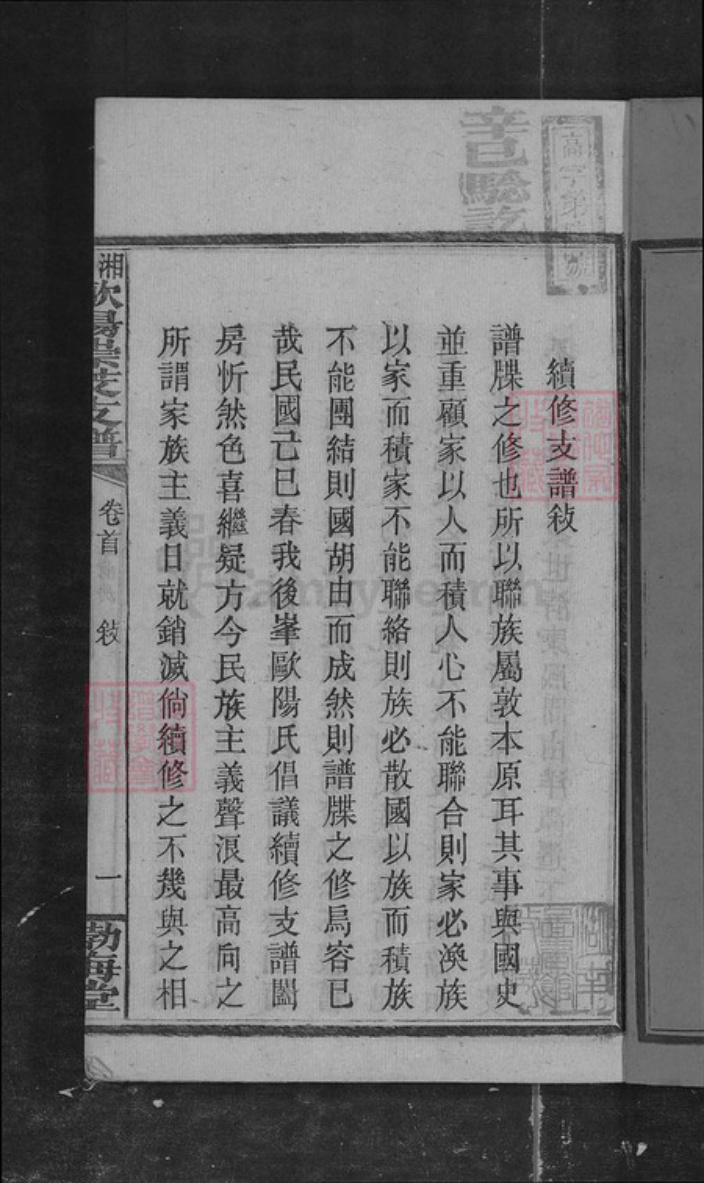 續修支譜敍
譜牒之修也所以聯族屬敦本原耳其事與國史
並重顧家以人而積人心不能聯合則家必渙族
以家而積家不能聯絡則族必散國以族而積族
不能團結則國胡由而成然則譜牒之修烏容已
哉民國己巳春我後峯歐陽氏倡議續修支譜闔
房忻然色喜繼疑方今民族主義聲浪最高向之
所謂家族主義日就銷滅倘續修之不幾與之相
湘
支譜
卷首
敍
一
勃海堂